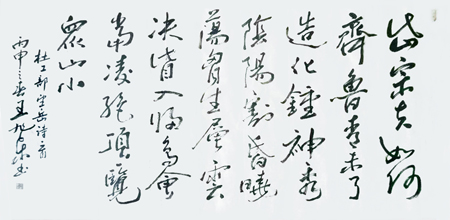 岱宗夫如何
齊魯青未了
造化鍾神秀
陰陽割昏曉
蕩胷生層雲
決眥入歸鳥會
當凌絕頂覽
眾山小
杜工部望岳詩
丙申之春王旭东书